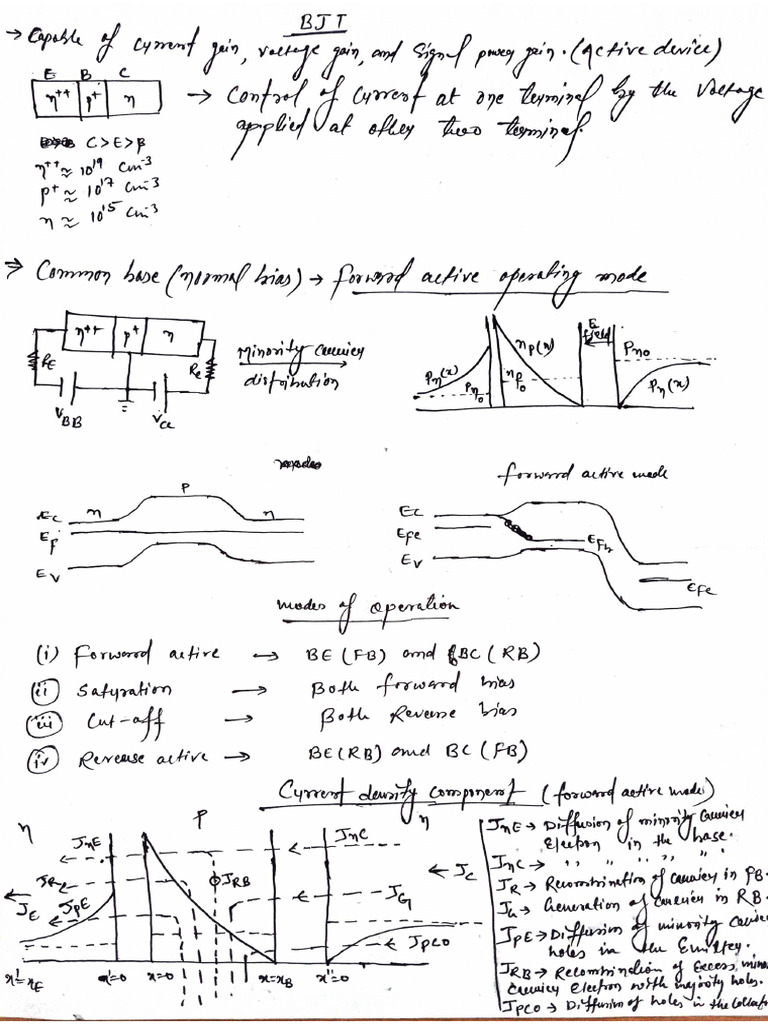 BJT
→ Capable of current gain, voltage gain, and signal power gain. (Active device)
E B C
n++ p+ n
→ Control of current at one terminal by the voltage
applied at other two terminal.
C > E > B
n++ ≈ 10^19 cm^-3
p+ ≈ 10^17 cm^-3
n ≈ 10^15 cm^-3
⇒ Common base (normal bias) → forward active operating mode
n++ p+ n
RE
Rc
VBB
Vcc
Minority carrier
distribution
E field
Pn(x) Pn0 np0 np(x) Pn0 Pn(x)
forward active mode
n P n
Ec
Ef
Ev
Ec
Efe
Ev
EFb
Efc
modes of operation
(i) Forward active → BE (FB) and BC (RB)
(ii) Saturation → Both forward bias
(iii) Cut-off → Both Reverse bias
(iv) Reverse active → BE(RB) and BC (FB)
Current density component (forward active modes)
n P n
JnE
JR
JE
JpE
JRB
JnC
JC
JG
JpCO
x'=xE x'=0 x=0 x=xB x''=0
JnE → Diffusion of minority carrier
Electron in the base.
JnC → ,, ,, ,, ,, ,,
JR → Recombination of carrier in FB.
JG → Generation of carrier in RB.
JPE → Diffusion of minority carrier
holes in the Emitter.
JRB → Recombination of Excess minor
carrier electron with majority holes.
JPCO → Diffusion of holes in the